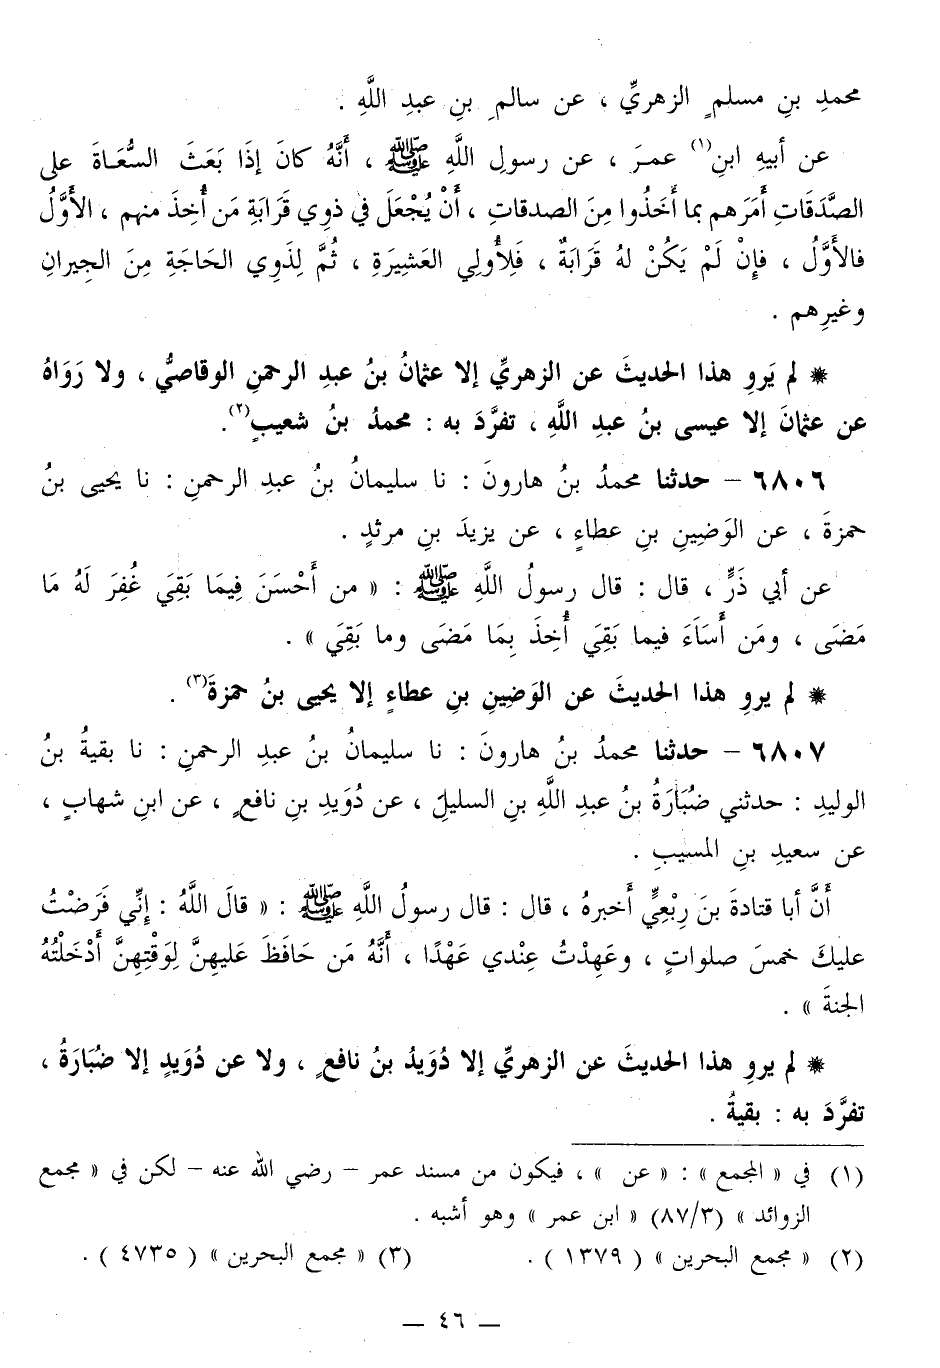 محمدِ بنِ مسلمٍ الزهريِّ ، عن سالمِ بنِ عبدِ اللَّهِ .
عن أبيهِ ابنِ(١) عمرَ ، عن رسولِ اللَّهِ ﷺ ، أَنَّهُ كانَ إذَا بَعَثَ السُّعَاةَ على
الصَّدَقَاتِ أَمَرَهم بما أَخَذُوا مِنَ الصدقاتِ ، أَنْ يُجْعَلَ في ذوِي قَرَابَةِ مَن أُخِذَ منهم ، الأَوَّلُ
فالأَوَّلُ ، فإنْ لَمْ يَكُنْ لهُ قَرَابَةٌ ، فَلِأُولِي العَشِيرَةِ ، ثُمَّ لِذَوِي الحَاجَةِ مِنَ الجِيرانِ
وغيرِهم .
⁕ لم يَروِ هذا الحديثَ عن الزهريِّ إلا عثمانُ بنُ عبدِ الرحمنِ الوقاصيُّ ، ولا رَوَاهُ
عن عثمانَ إلا عيسى بنُ عبدِ اللَّهِ ، تفرَّدَ به : محمدُ بنُ شعيبٍ(٢).
٦٨٠٦ – حدثنا محمدُ بنُ هارونَ : نا سليمانُ بنُ عبدِ الرحمنِ : نا يحيى بنُ
حمزةَ ، عن الوَضِينِ بنِ عطاءٍ ، عن يزيدَ بنِ مرثدٍ .
عن أبي ذَرٍّ ، قال : قال رسولُ اللَّهِ ﷺ : « من أَحْسَنَ فِيمَا بَقِيَ غُفِرَ لَهُ مَا
مَضَى ، ومَن أَسَاءَ فيما بَقِيَ أُخِذَ بِمَا مَضَى وما بَقِيَ » .
⁕ لم يروِ هذا الحديثَ عن الوَضِينِ بنِ عطاءٍ إلا يحيى بنُ حمزةَ(٣) .
٦٨٠٧ – حدثنا محمدُ بنُ هارونَ : نا سليمانُ بنُ عبدِ الرحمنِ : نا بقيةُ بنُ
الوليدِ : حدثني ضُبَارَةُ بنُ عبدِ اللَّهِ بنِ السليلِ ، عن دُوَيدِ بنِ نافعٍ ، عن ابنِ شهابٍ ،
عن سعيدِ بنِ المسيبِ .
أَنَّ أبا قتادةَ بنَ رِبْعِيٍّ أخبرهُ ، قال : قال رسولُ اللَّهِ ﷺ : « قالَ اللَّهُ : إنِّي فَرَضْتُ
عليكَ خمسَ صلواتٍ ، وعَهِدْتُ عِنْدي عَهْدًا ، أَنَّهُ مَن حَافَظَ عليهِنَّ لِوَقْتِهِنَّ أَدْخَلْتُهُ
الجنةَ » .
⁕ لم يروِ هذا الحديثَ عن الزهريِّ إلا دُوَيدُ بنُ نافعٍ ، ولا عن دُوَيدٍ إلا ضُبَارَةُ ،
تفرَّدَ به : بقيةُ .
(١) في « المجمع » : « عن » ، فيكون من مسند عمر – رضي الله عنه – لكن في « مجمع
الزوائد » (٨٧/٣) « ابن عمر » وهو أشبه .
(٢) « مجمع البحرين » ( ١٣٧٩ ) . (٣) « مجمع البحرين » ( ٤٧٣٥ ) .
— ٤٦ —